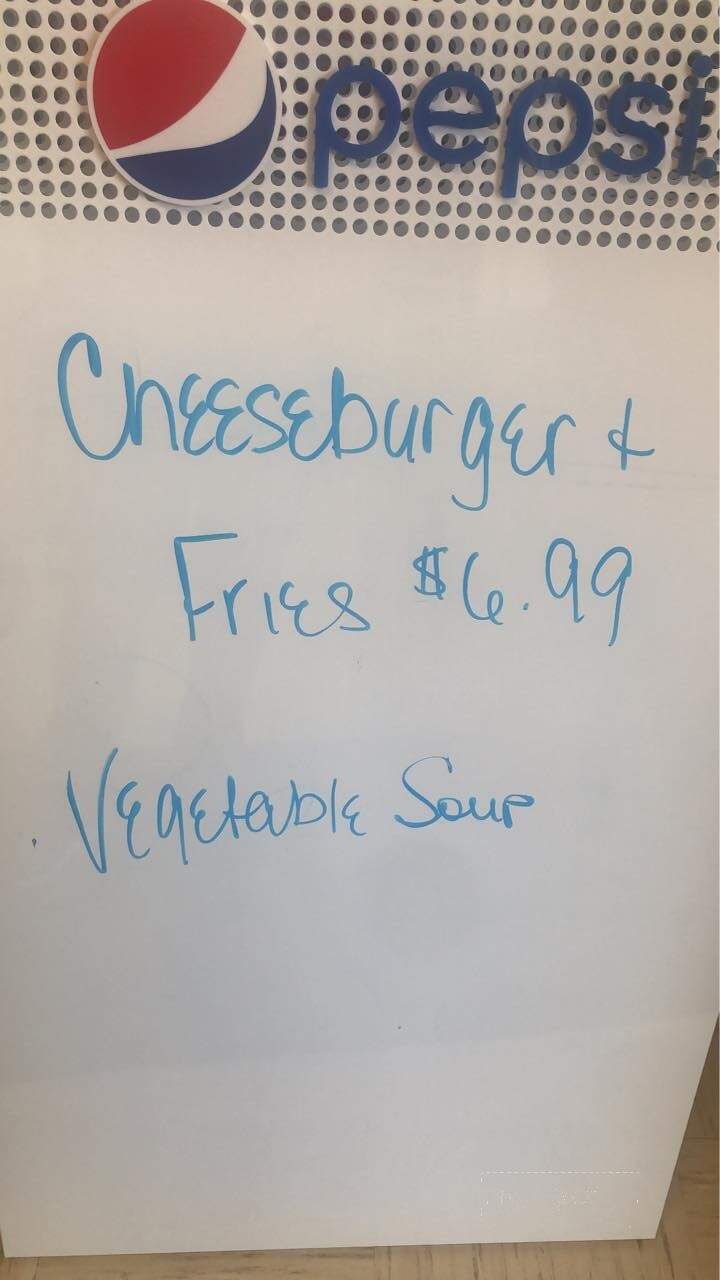 pepsi
Cheeseburger &
Fries $6.99
Vegetable Soup